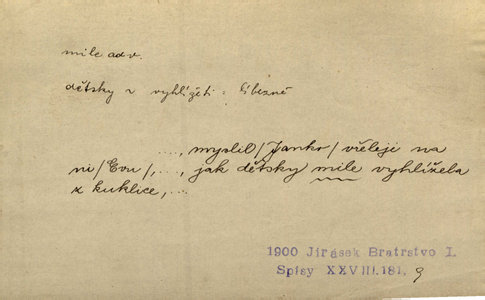 mile adv.
dětsky ~ vyhlížeti : líbezně
..., myslil /Janko/ vřeleji na
ni /Evu/,..., jak dětsky mile vyhlížela
z kuklice,...
1900 Jirásek Bratrstvo I.
Spisy XXVIII.181, 9